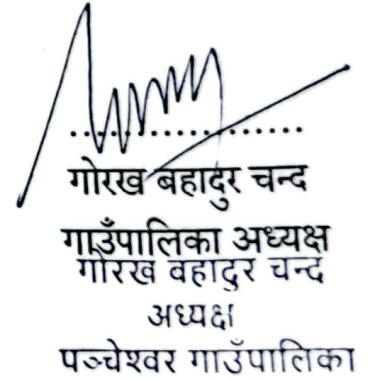 गोरख बहादुर चन्द
गाउँपालिका अध्यक्ष
गोरख वहादुर चन्द
अध्यक्ष
पञ्चेश्वर गाउँपालिका